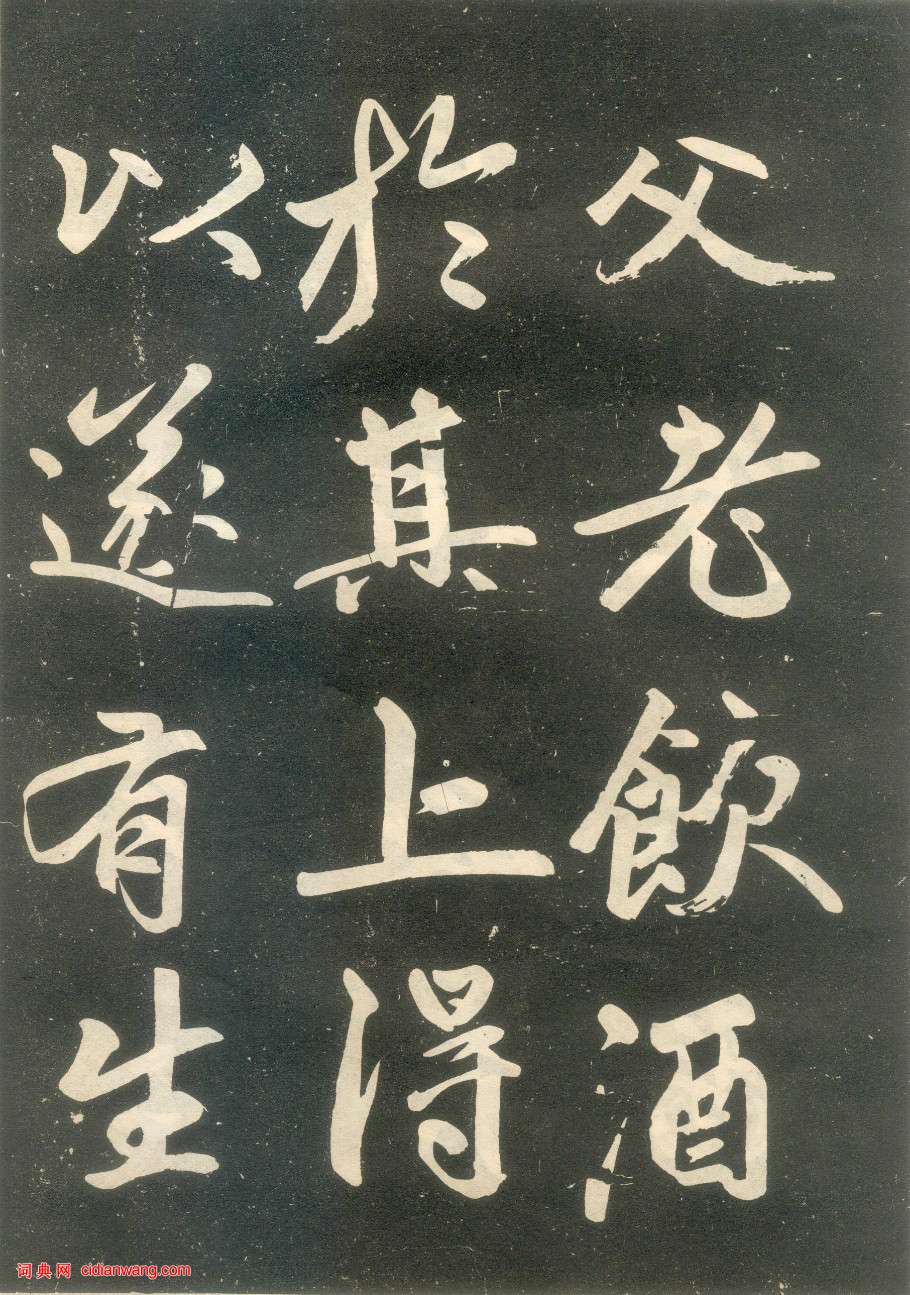 父老飲酒
於其上得
以遂有生
词典网 cidianwang.com